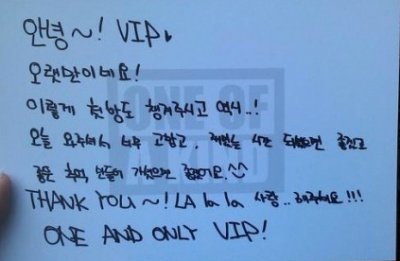 안녕~! VIP♥
오랫만이네요!
이렇게 첫방도 챙겨주시고 역시..!
오늘 와주셔서 너무 고맙고, 재밌는 시간 되셨으면 좋겠고
좋은 추억 만들어 가셨으면 좋겠어요.^^
THANK YOU~! LA la la 사랑..해주세요!!!
ONE AND ONLY VIP!
ONE OF
A KIND